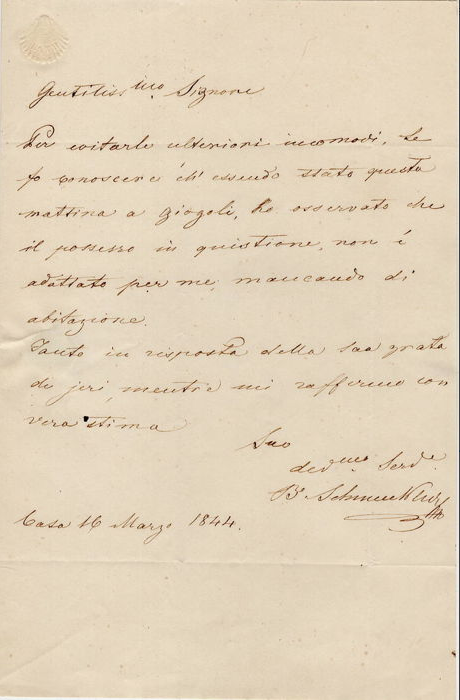 Gentiliss.mo Signore
Per evitarle ulteriori incomodi, Le
fo conoscere ch' essendo stato questa
mattina a Giogoli, ho osservato che
il possesso in quistione, non é
adattato per me, mancando di
abitazione.
Tanto in risposta della sua grata
di jeri, mentre mi raffermo con
vera stima
Suo
dev.mo Serv.e
Casa 16 Marzo 1844.